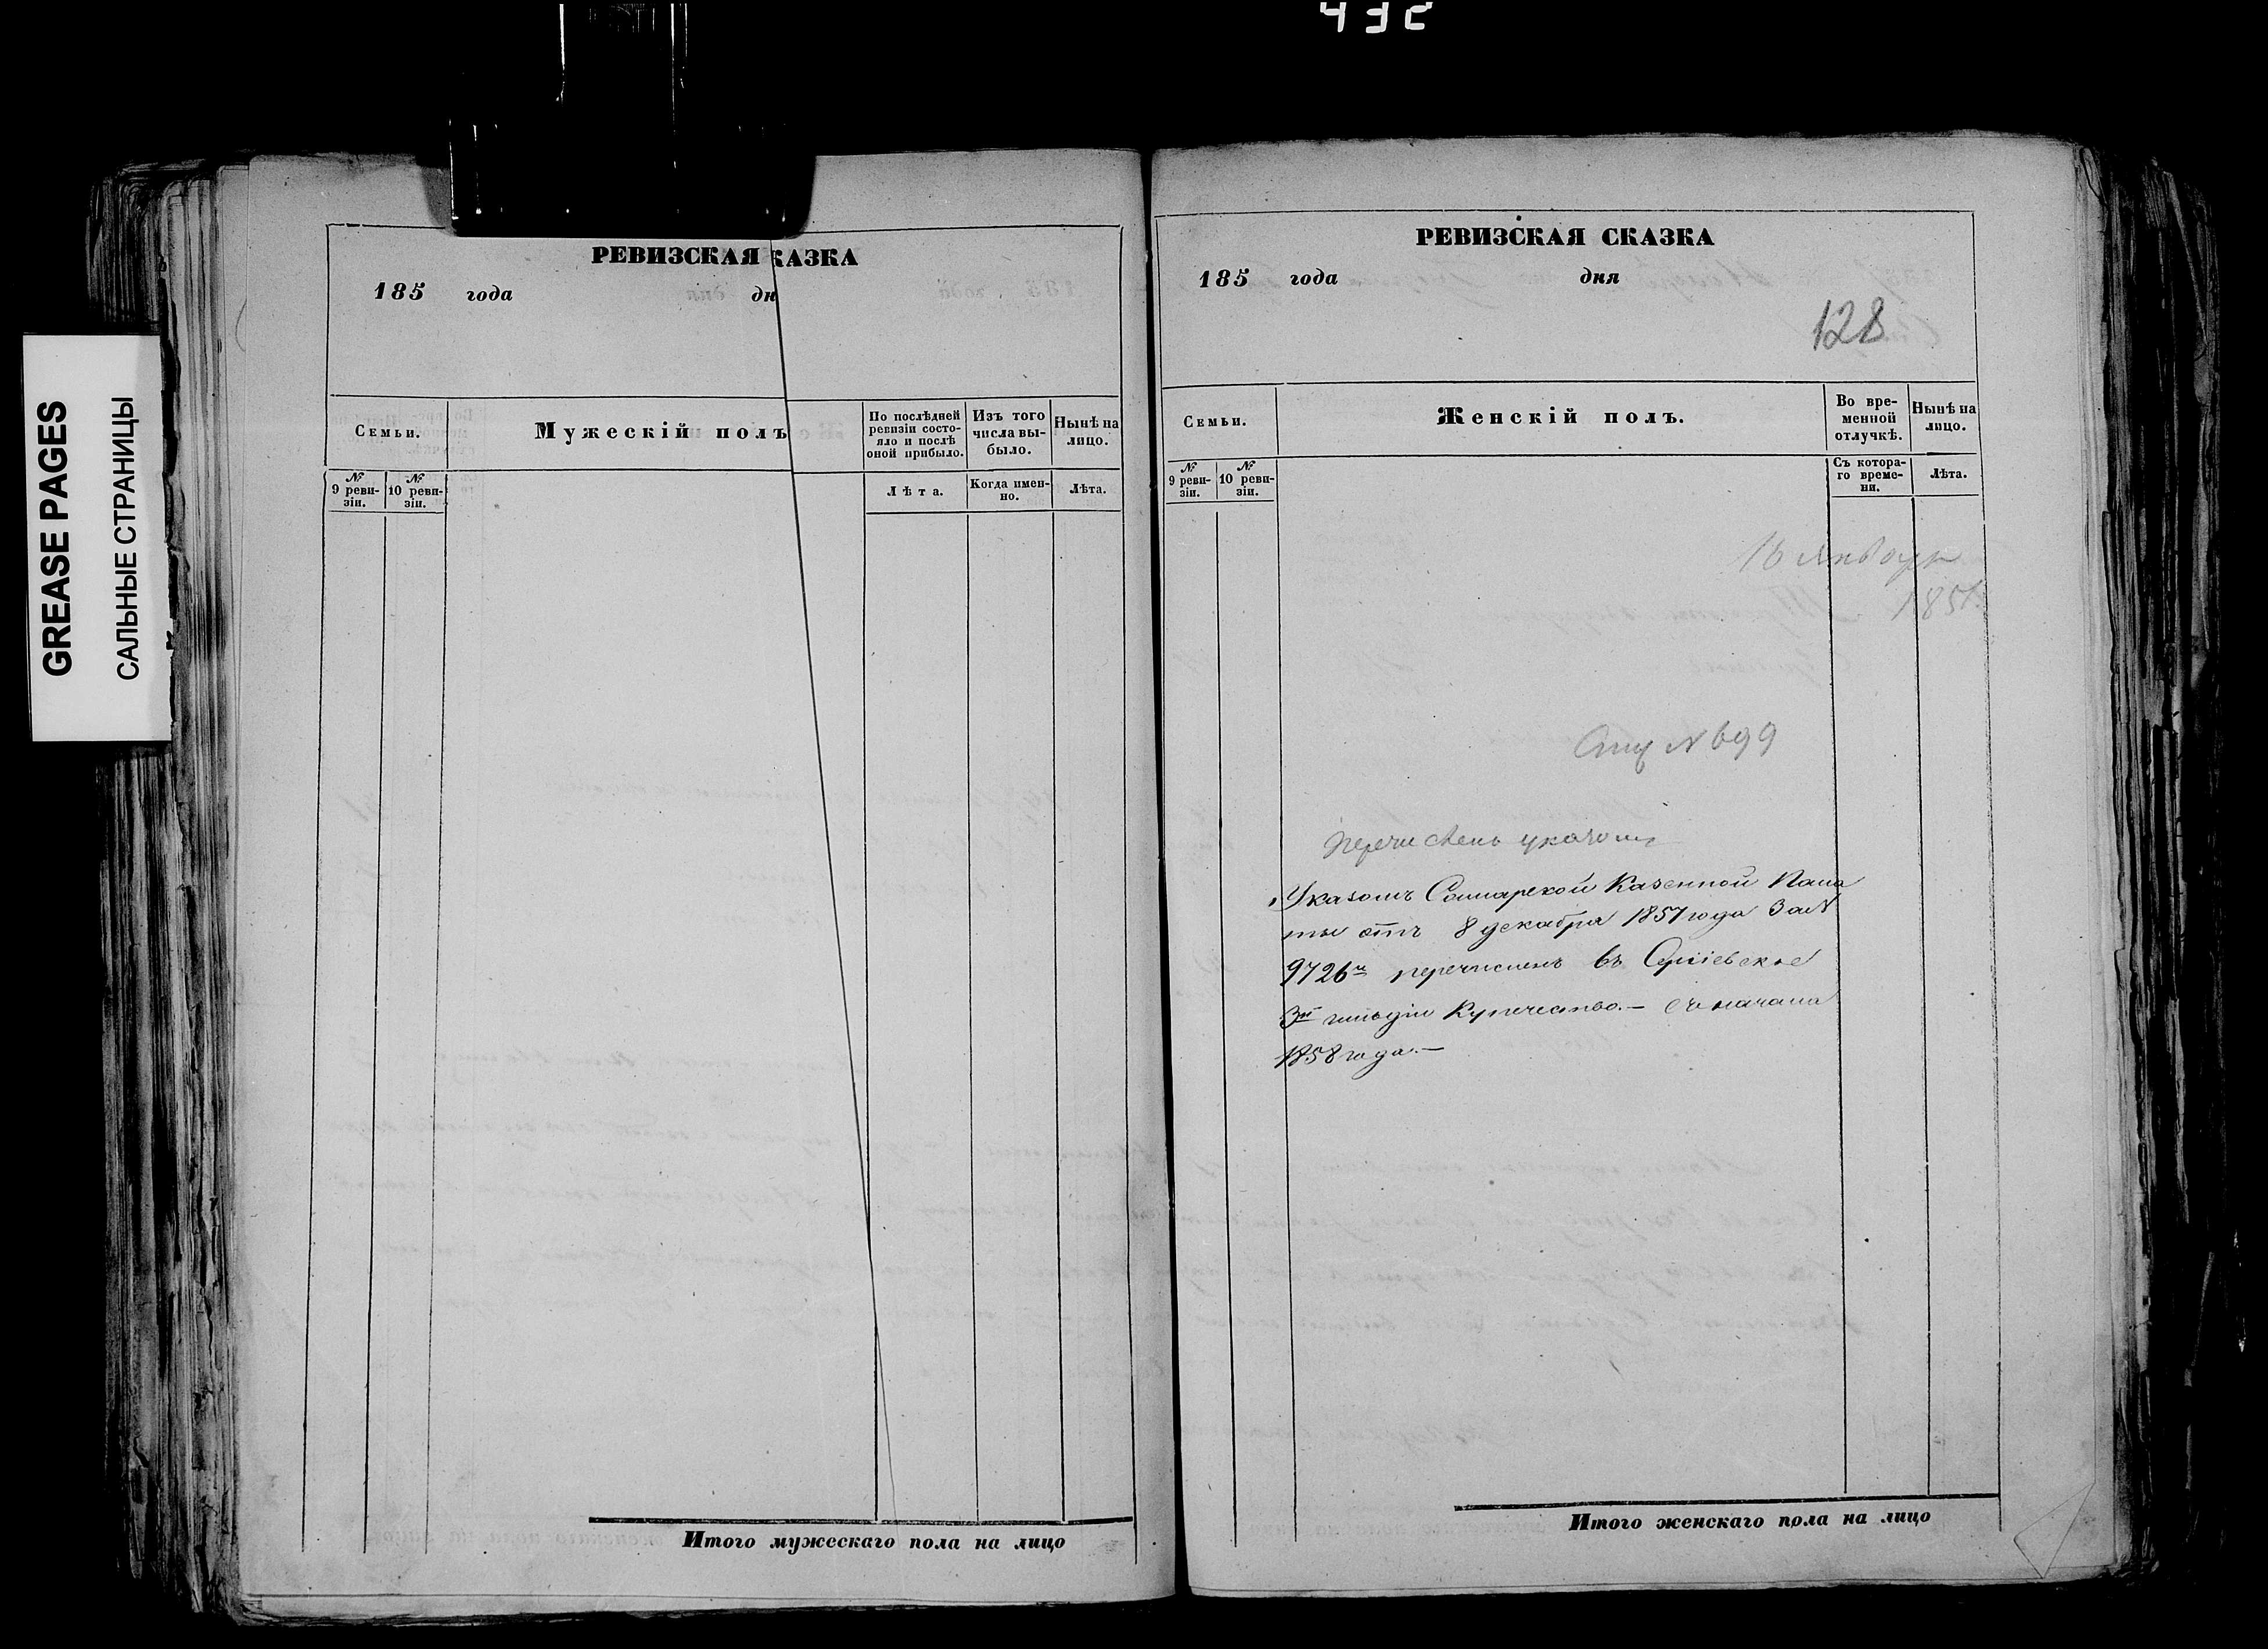 432
GREASE PAGES
САЛЬНЫЕ СТРАНИЦЫ
РЕВИЗСКАЯ КАЗКА
185 года дн
Семьи.
Мужескій полъ
По послѣдней ревизіи состояло и послѣ оной прибыло.
Изъ того числа выбыло.
Нынѣ на лицо.
№ 9 ревизіи.
№ 10 ревизіи.
Лѣта.
Когда именно.
Лѣта.
Итого мужескаго пола на лицо
РЕВИЗСКАЯ СКАЗКА
185 года дня
128
Семьи.
Женскій полъ.
Во временной отлучкѣ.
Нынѣ на лицо.
№ 9 ревизіи.
№ 10 ревизіи.
Съ котораго времени.
Лѣта.
16 января
185
N 699
перечислень указомъ
Указомъ Самарской Казенной Пала
ты отъ 8 декабря 1857 года За №
9726 перечисленъ въ Сергіевское
3й гильдіи Купечество.— съ начала
1858 года.—
Итого женскаго пола на лицо